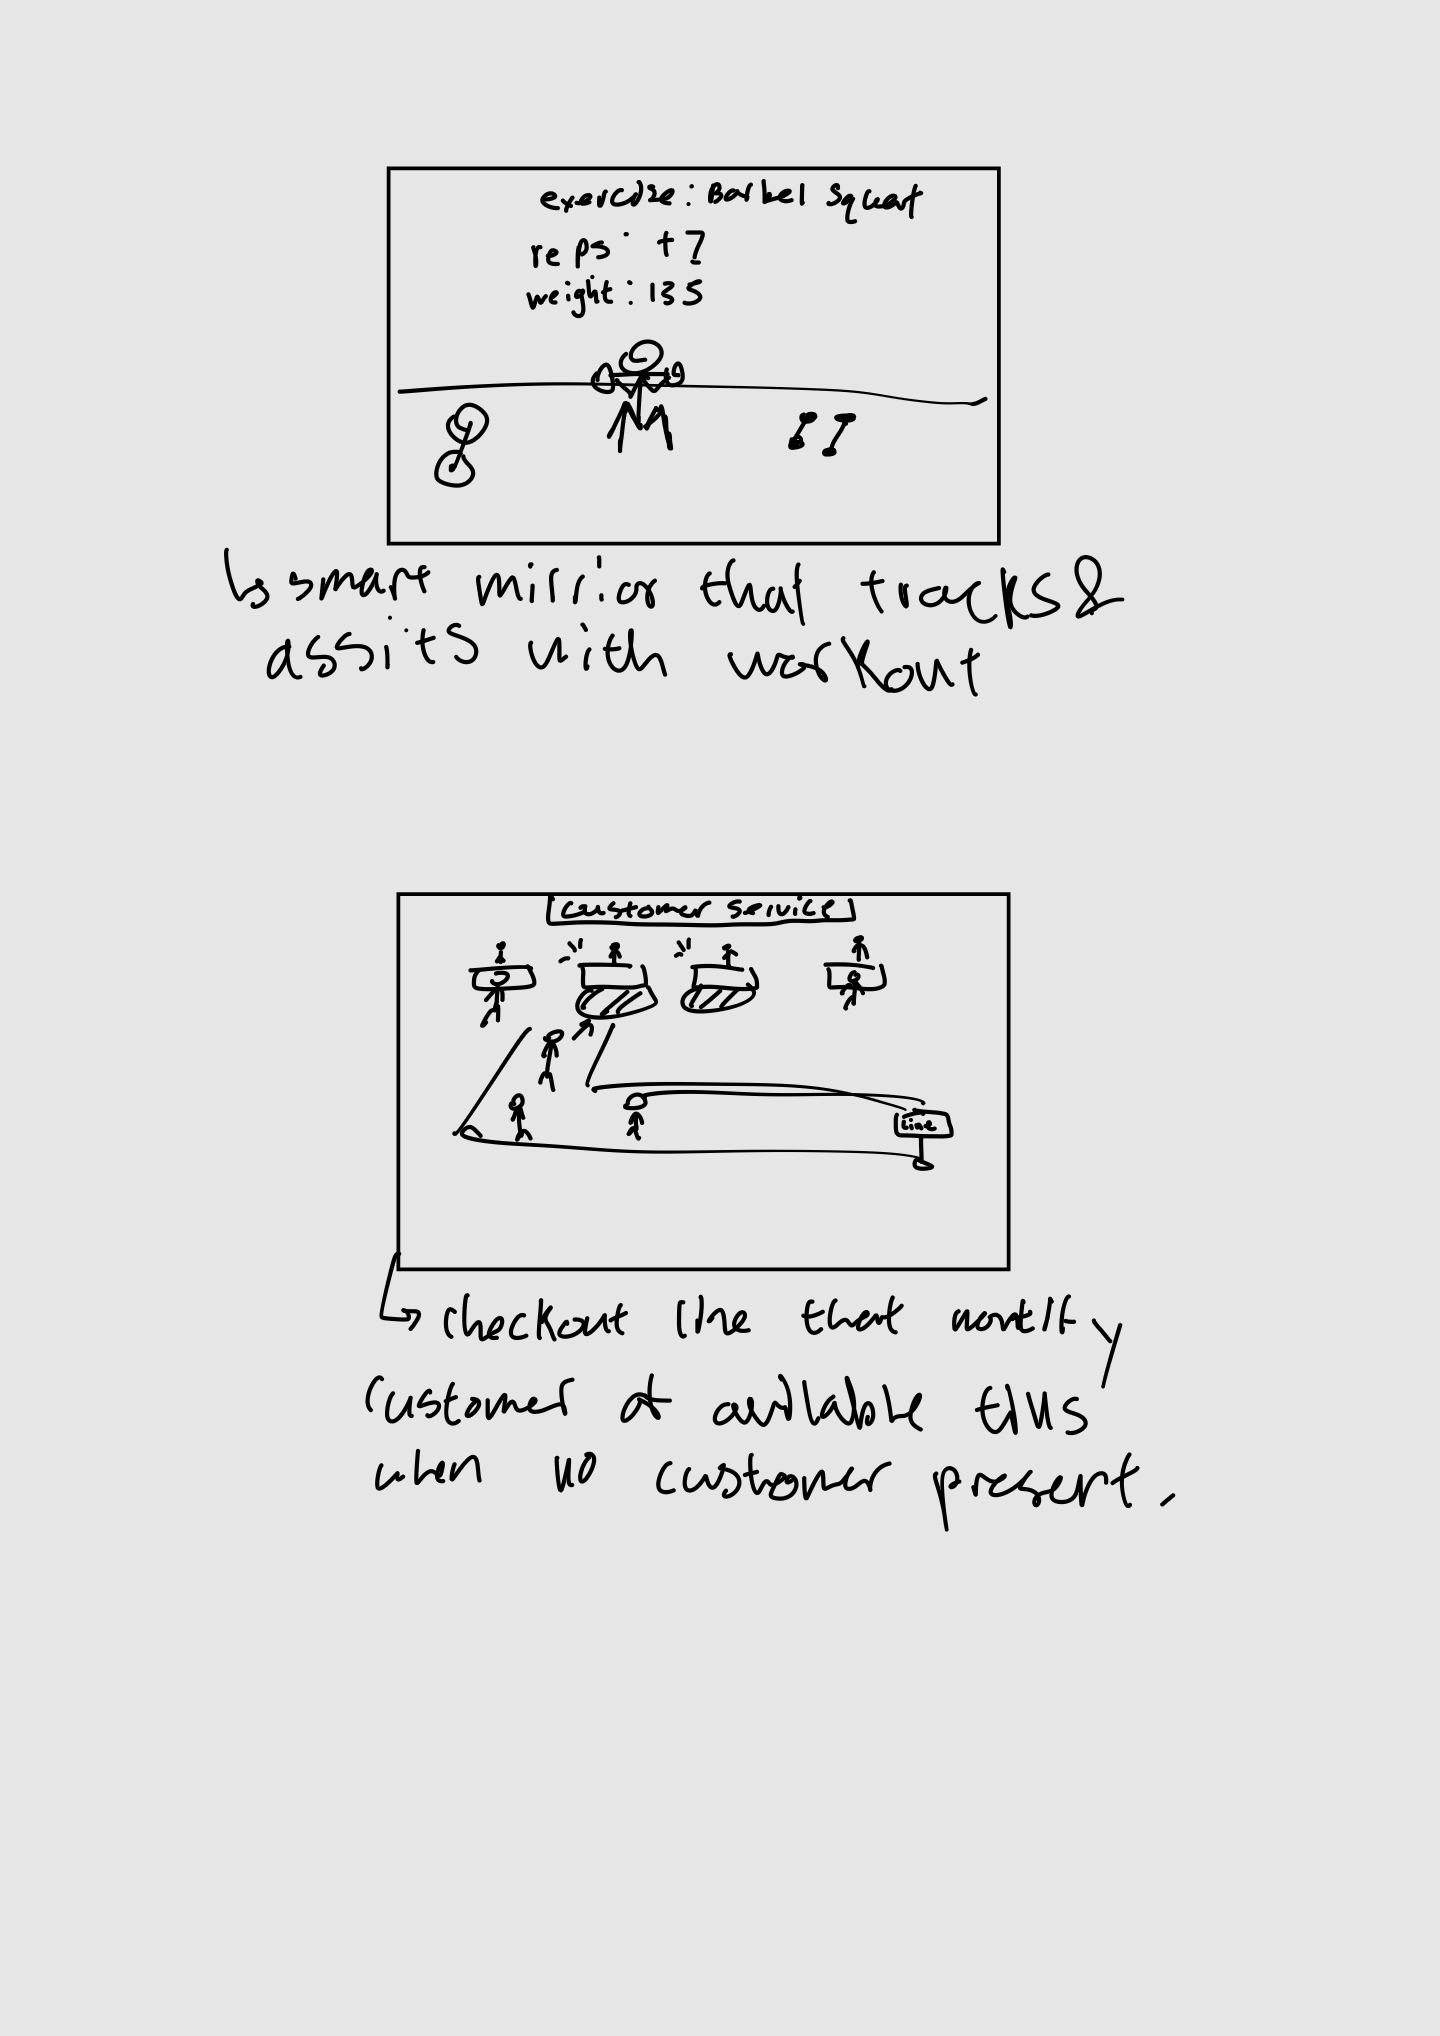 exercise: Barbel squat
reps: +7
weight: 135
smart mirrior that tracks &
assits with workout
customer service
Line
checkout line that nontify
customer of available tills
when no customer present.